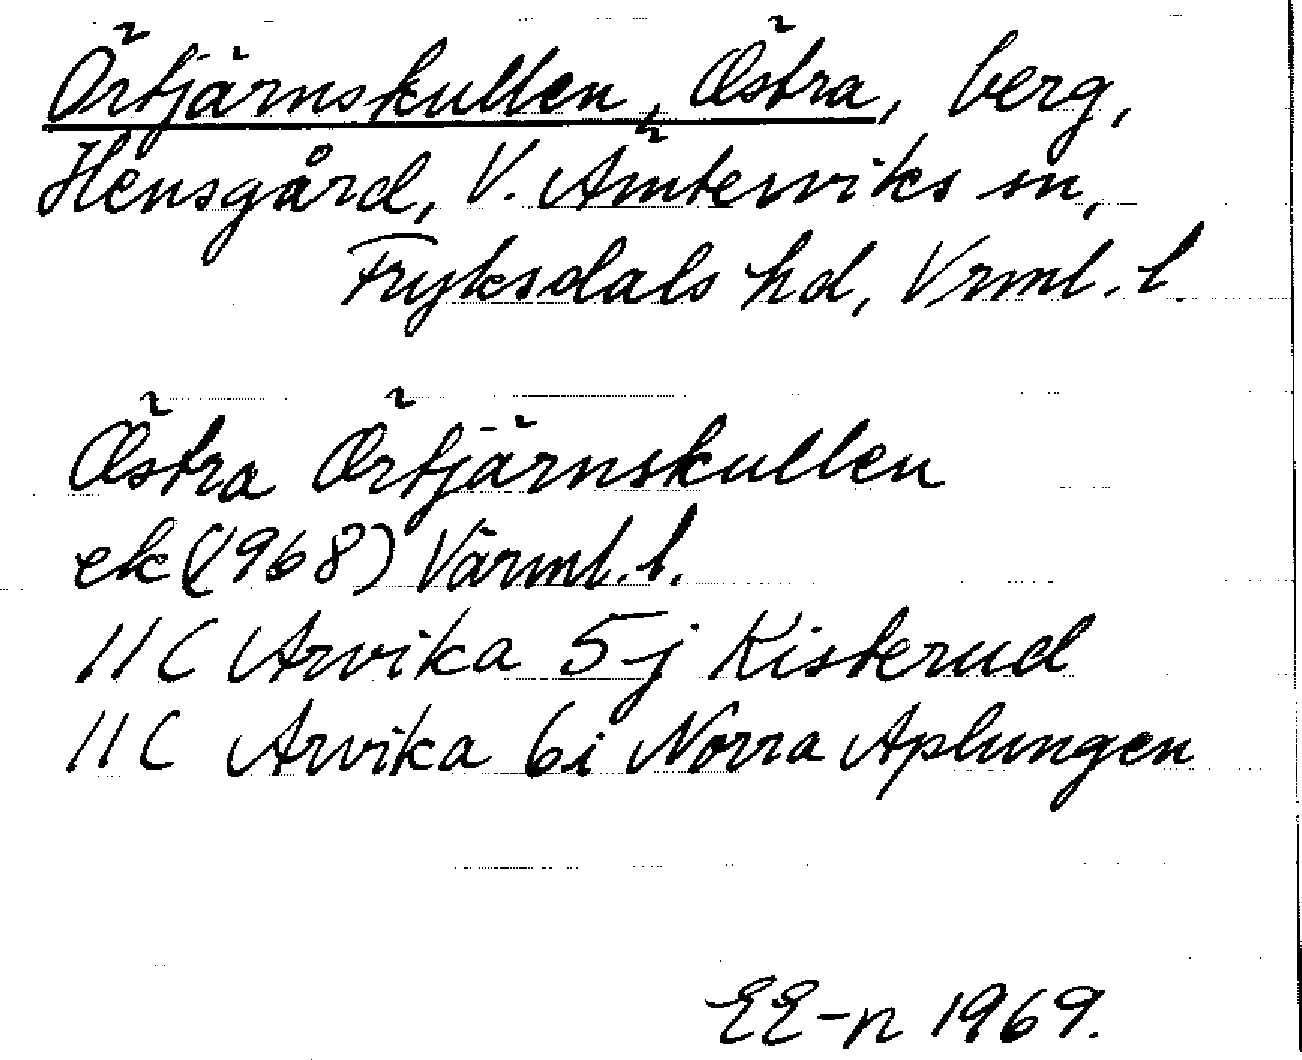 Örtjärnskullen, Östra, berg,
Hensgård, V. Ämterviks sn,
Fryksdals hd, Vrml. l.
Östra Örtjärnskullen
ek (1968) Värml. l.
11C Arvika 5j Kisterud
11C Arvika 6i Norra Aplungen
EE-n 1969.